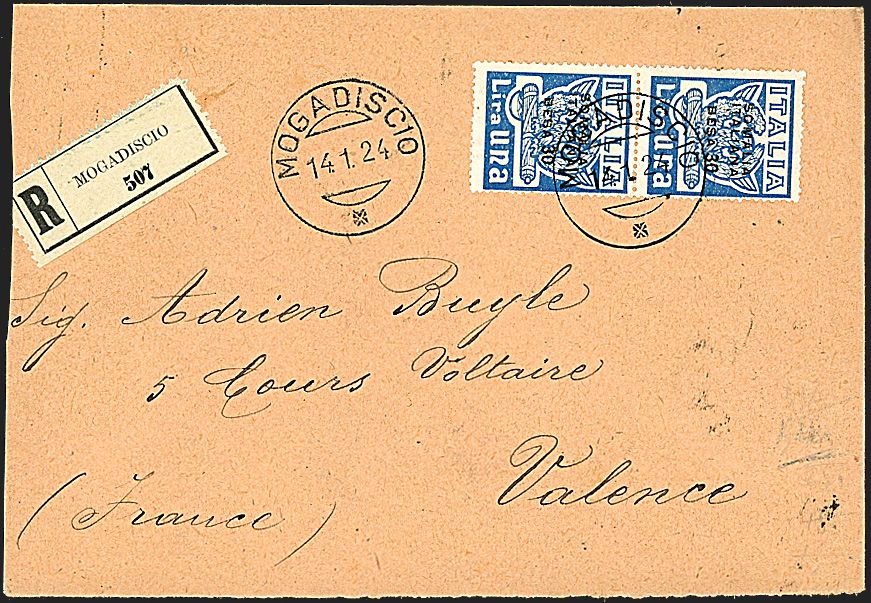 R
MOGADISCIO
507
MOGADISCIO
14.1.24
ITALIA
SOMALIA
ITALIANA
BESA 30
Lira Una
ITALIA
SOMALIA
ITALIANA
BESA 30
Lira Una
MOGADISCIO
14.1.24
Sig. Adrien Buyle
5 Cours Voltaire
Valence
(France)